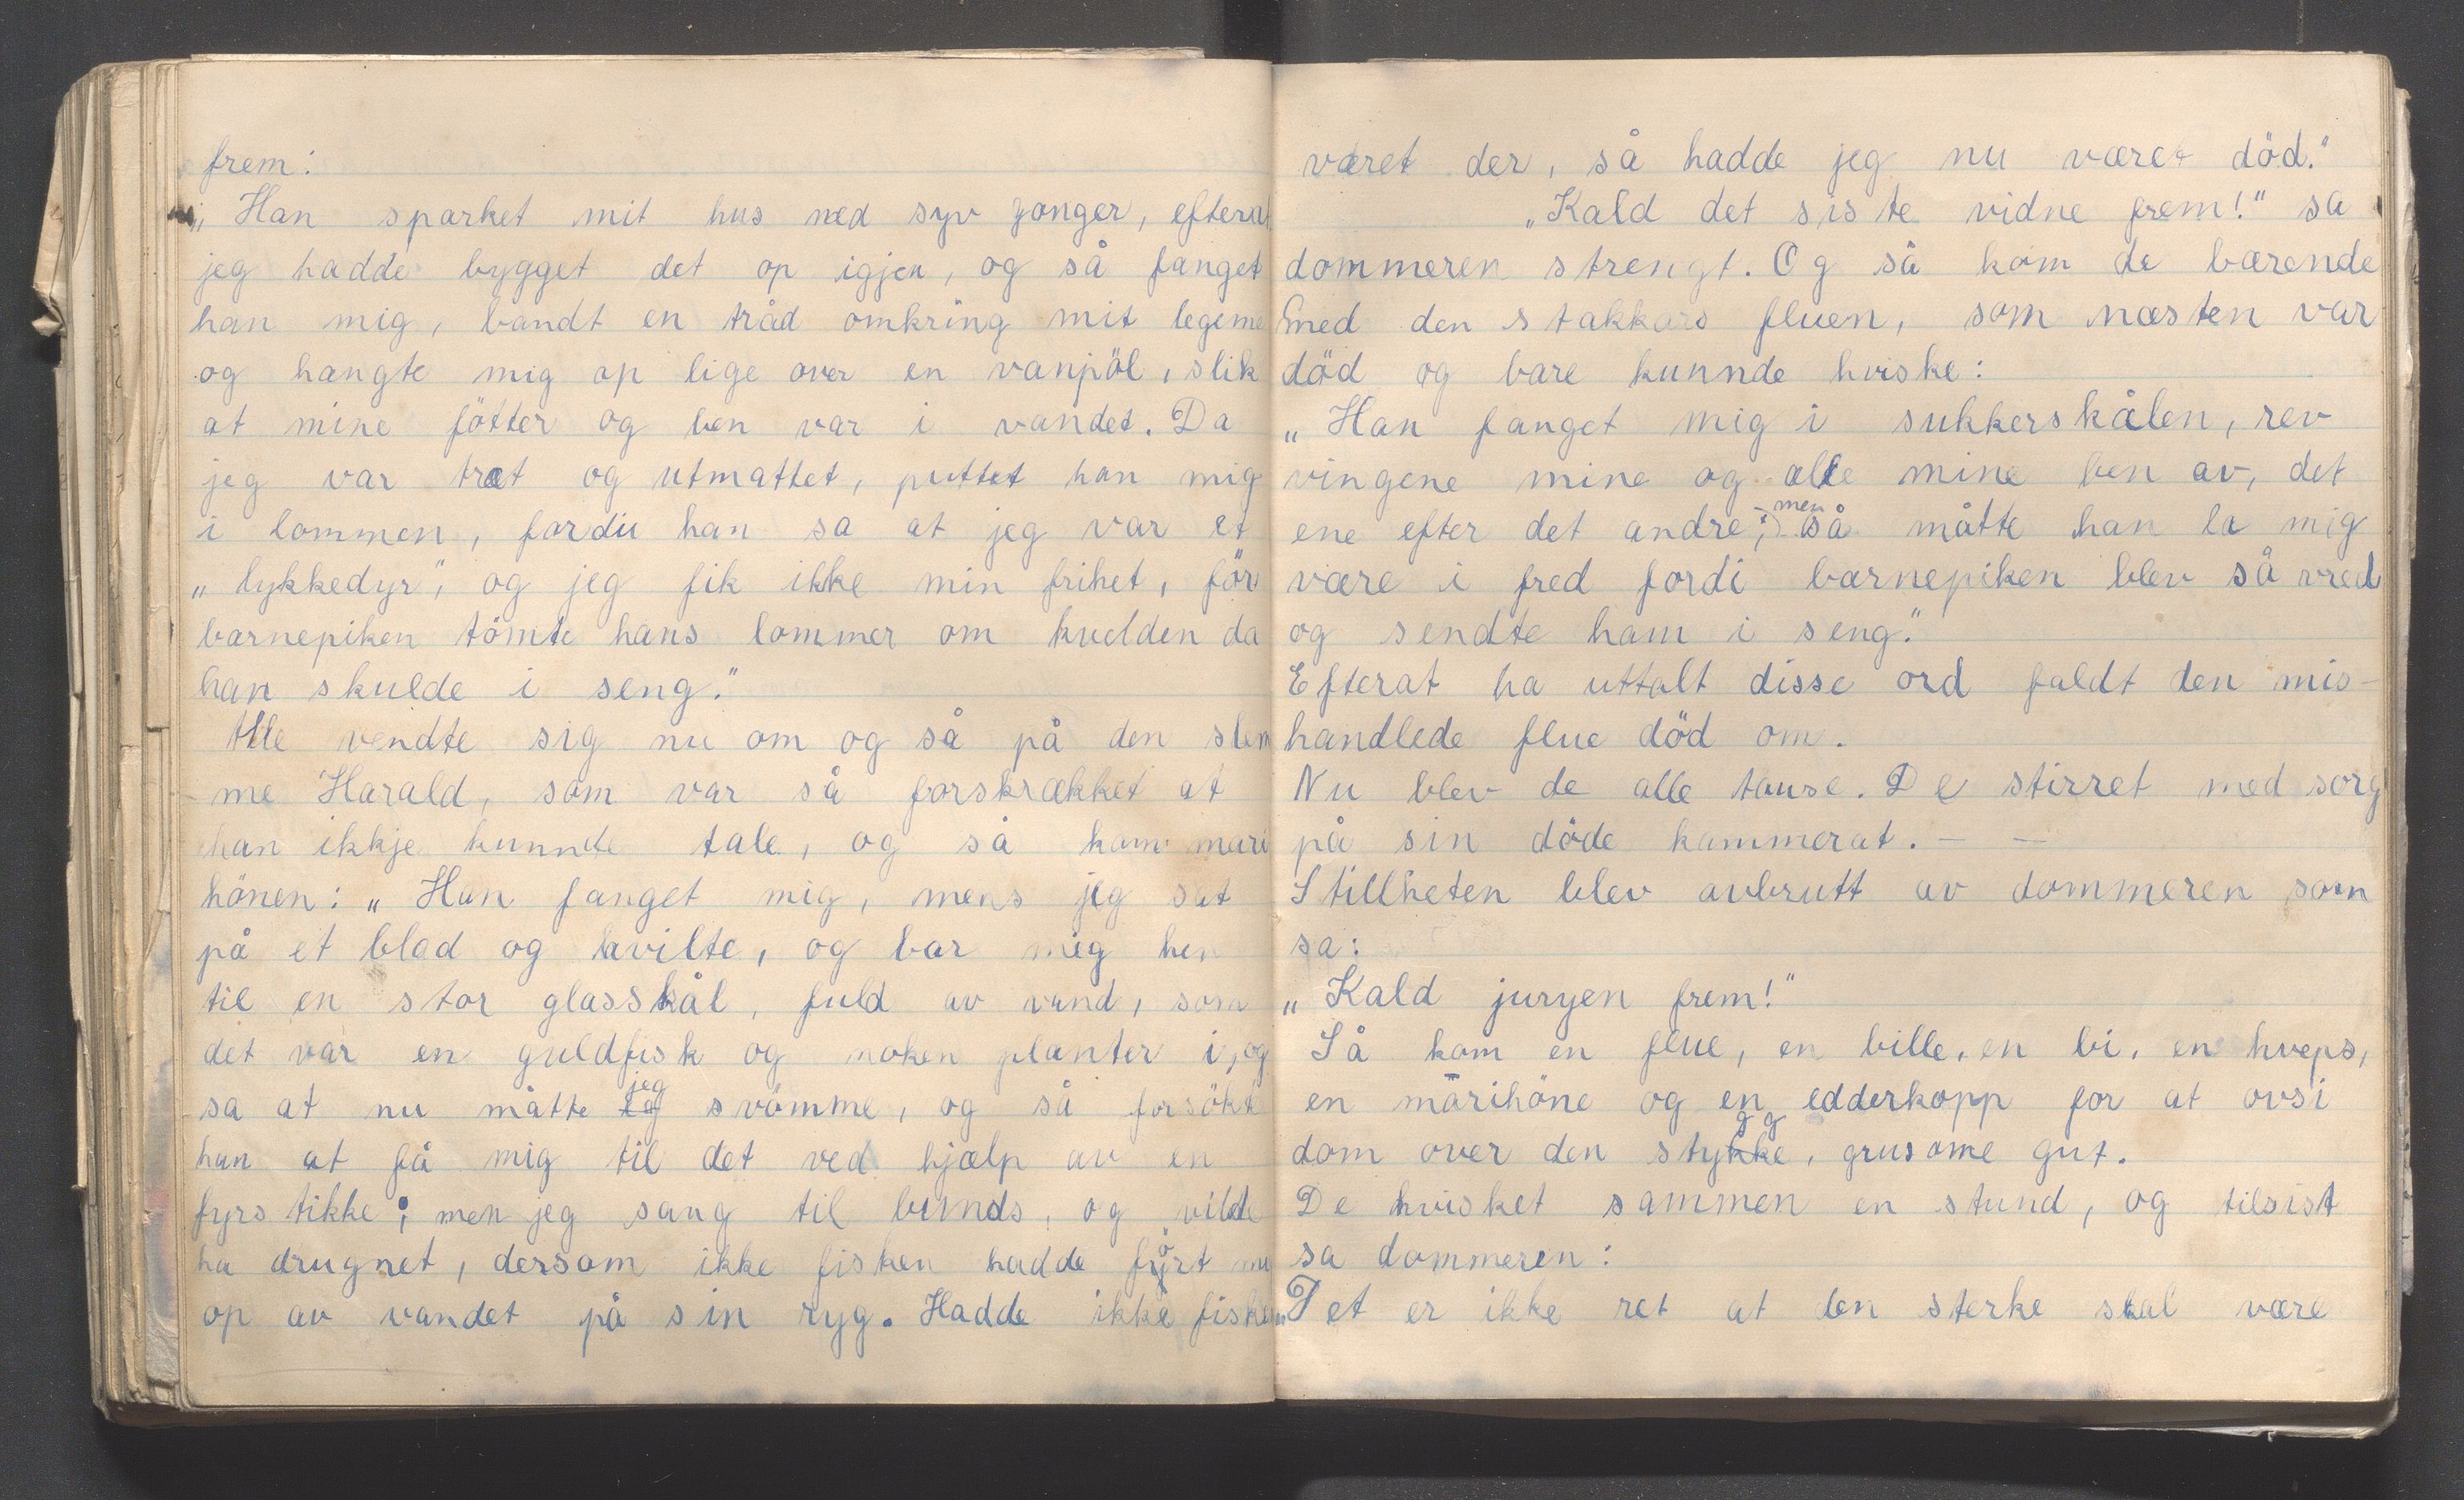 frem:
„Han sparket mit hus ned syv ganger, efterat
jeg hadde bygget det op igjen, og så fanget
han mig, bandt en tråd omkring mit legeme
og hangte mig op lige over en vanpöl, slik
at mine fötter og ben var i vandet. Da
jeg var træt og utmattet, puttet han mig
i lommen, fordii han sa at jeg var et
„lykkedyr", og jeg fik ikke min frihet, för
barnepiken tömte hans lommer om kvelden da
han skulde i seng."
Alle vendte sig nu om og så på den slem
me Harald, som var så forskrækket at
han ikkje kunnde tale, og så kom mari
hönen: „Han fanget mig, mens jeg sat
på et blad og hvilte, og bar mig hen
til en stor glasskål, fuld av vand, som
det var en guldfisk og noken planter i, og
sa at nu måtte jeg svömme, og så forsökte
han at få mig til det ved hjælp av en
fyrstikke; men jeg sang til bunds, og vilde
ha drugnet, dersom ikke fisken hadde fört mi
op av vandet på sin ryg. Hadde ikke fisken
været der, så hadde jeg nu været död."
„Kald det siste vidne frem!" sa
dommeren strengt. Og så kom de bærende
med den stakkars fluen, som næsten var
död og bare kunnde hviske:
„Han fanget mig i sukkerskålen, rev
vingene mine og alle mine ben av, det
ene efter det andre; men så måtte han la mig
være i fred fordi barnepiken blev så vred
og sendte ham i seng."
Efterat ha uttalt disse ord faldt den mis-
handlede flue död om.
Nu blev de alle tause. De stirret med sorg
på sin döde kammerat. – –
Stillheten blev avbrutt av dommeren som
sa:
„Kald juryen frem!"
Så kom en flue, en bille, en bi, en hveps,
en marihöne og en edderkopp for at avsi
dom over den stygge, grusome gut.
De hvisket sammen en stund, og tilsist
sa dommeren:
„Det er ikke ret at den sterke skal være